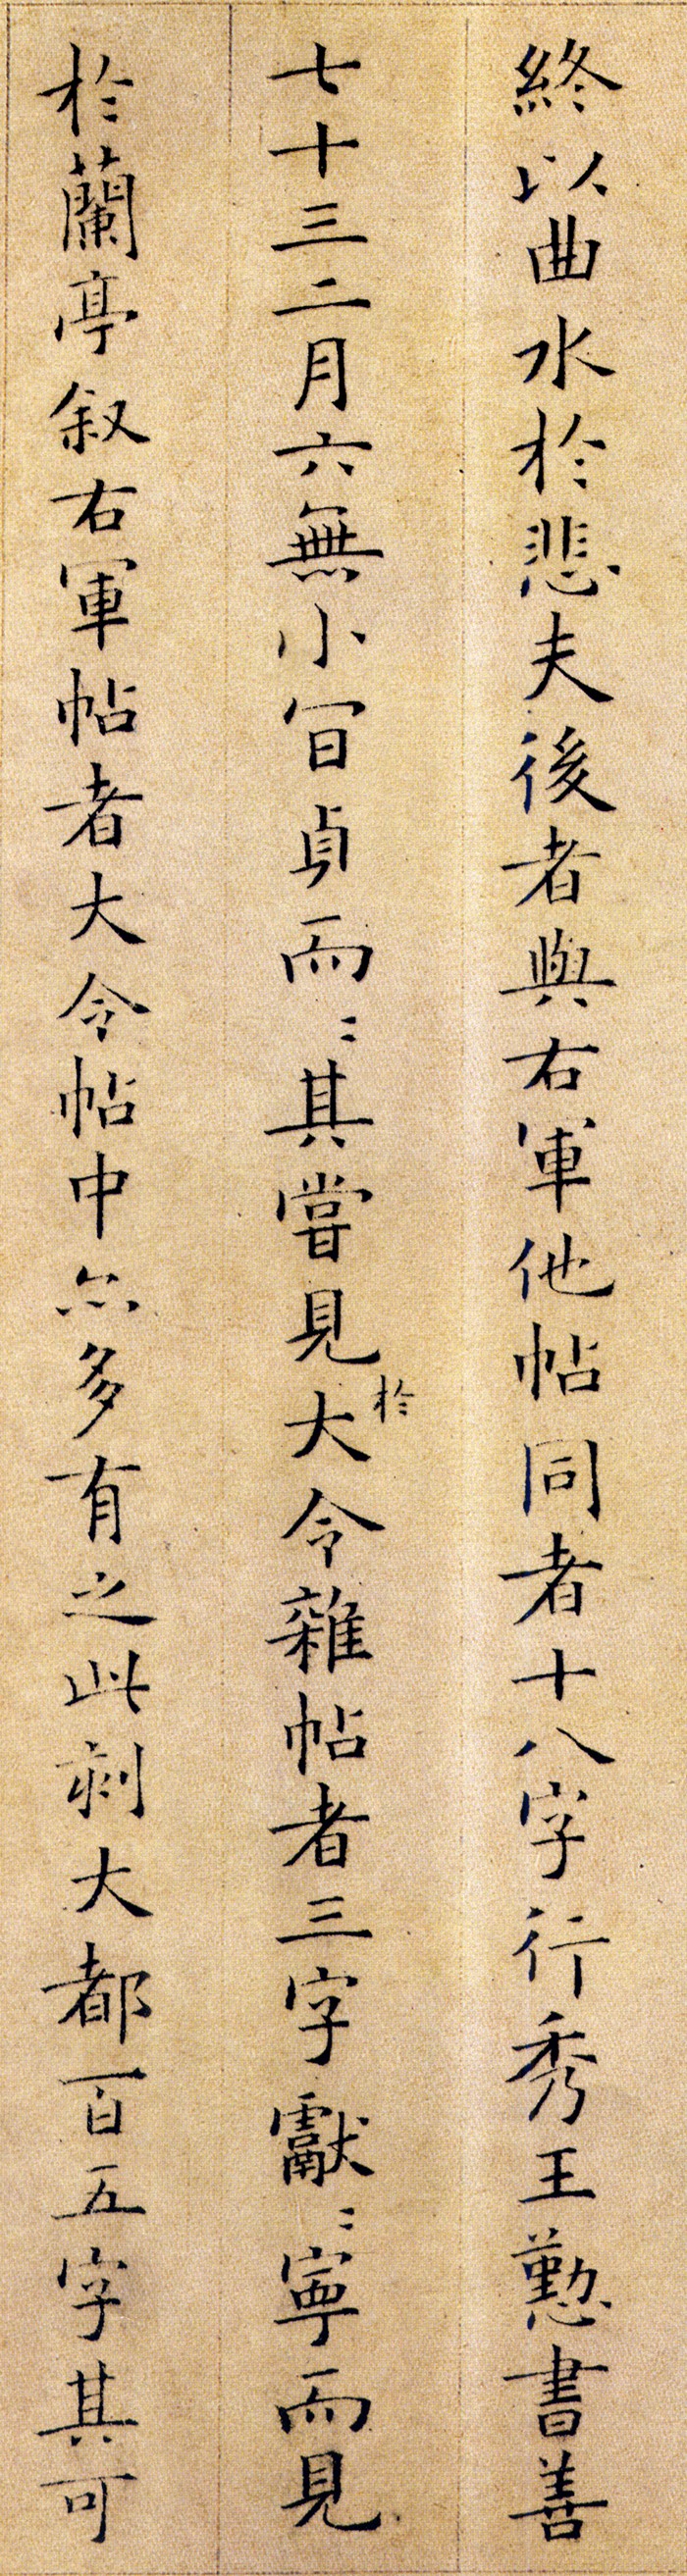 終以曲水於悲夫後者與右軍他帖同者十八字行秀王懃書善
七十三二月六無小貞而〻其嘗見於大令雜帖者三字獻〻寧而見
於蘭亭叙右軍帖者大令帖中亦多有之此刻大都百五字其可